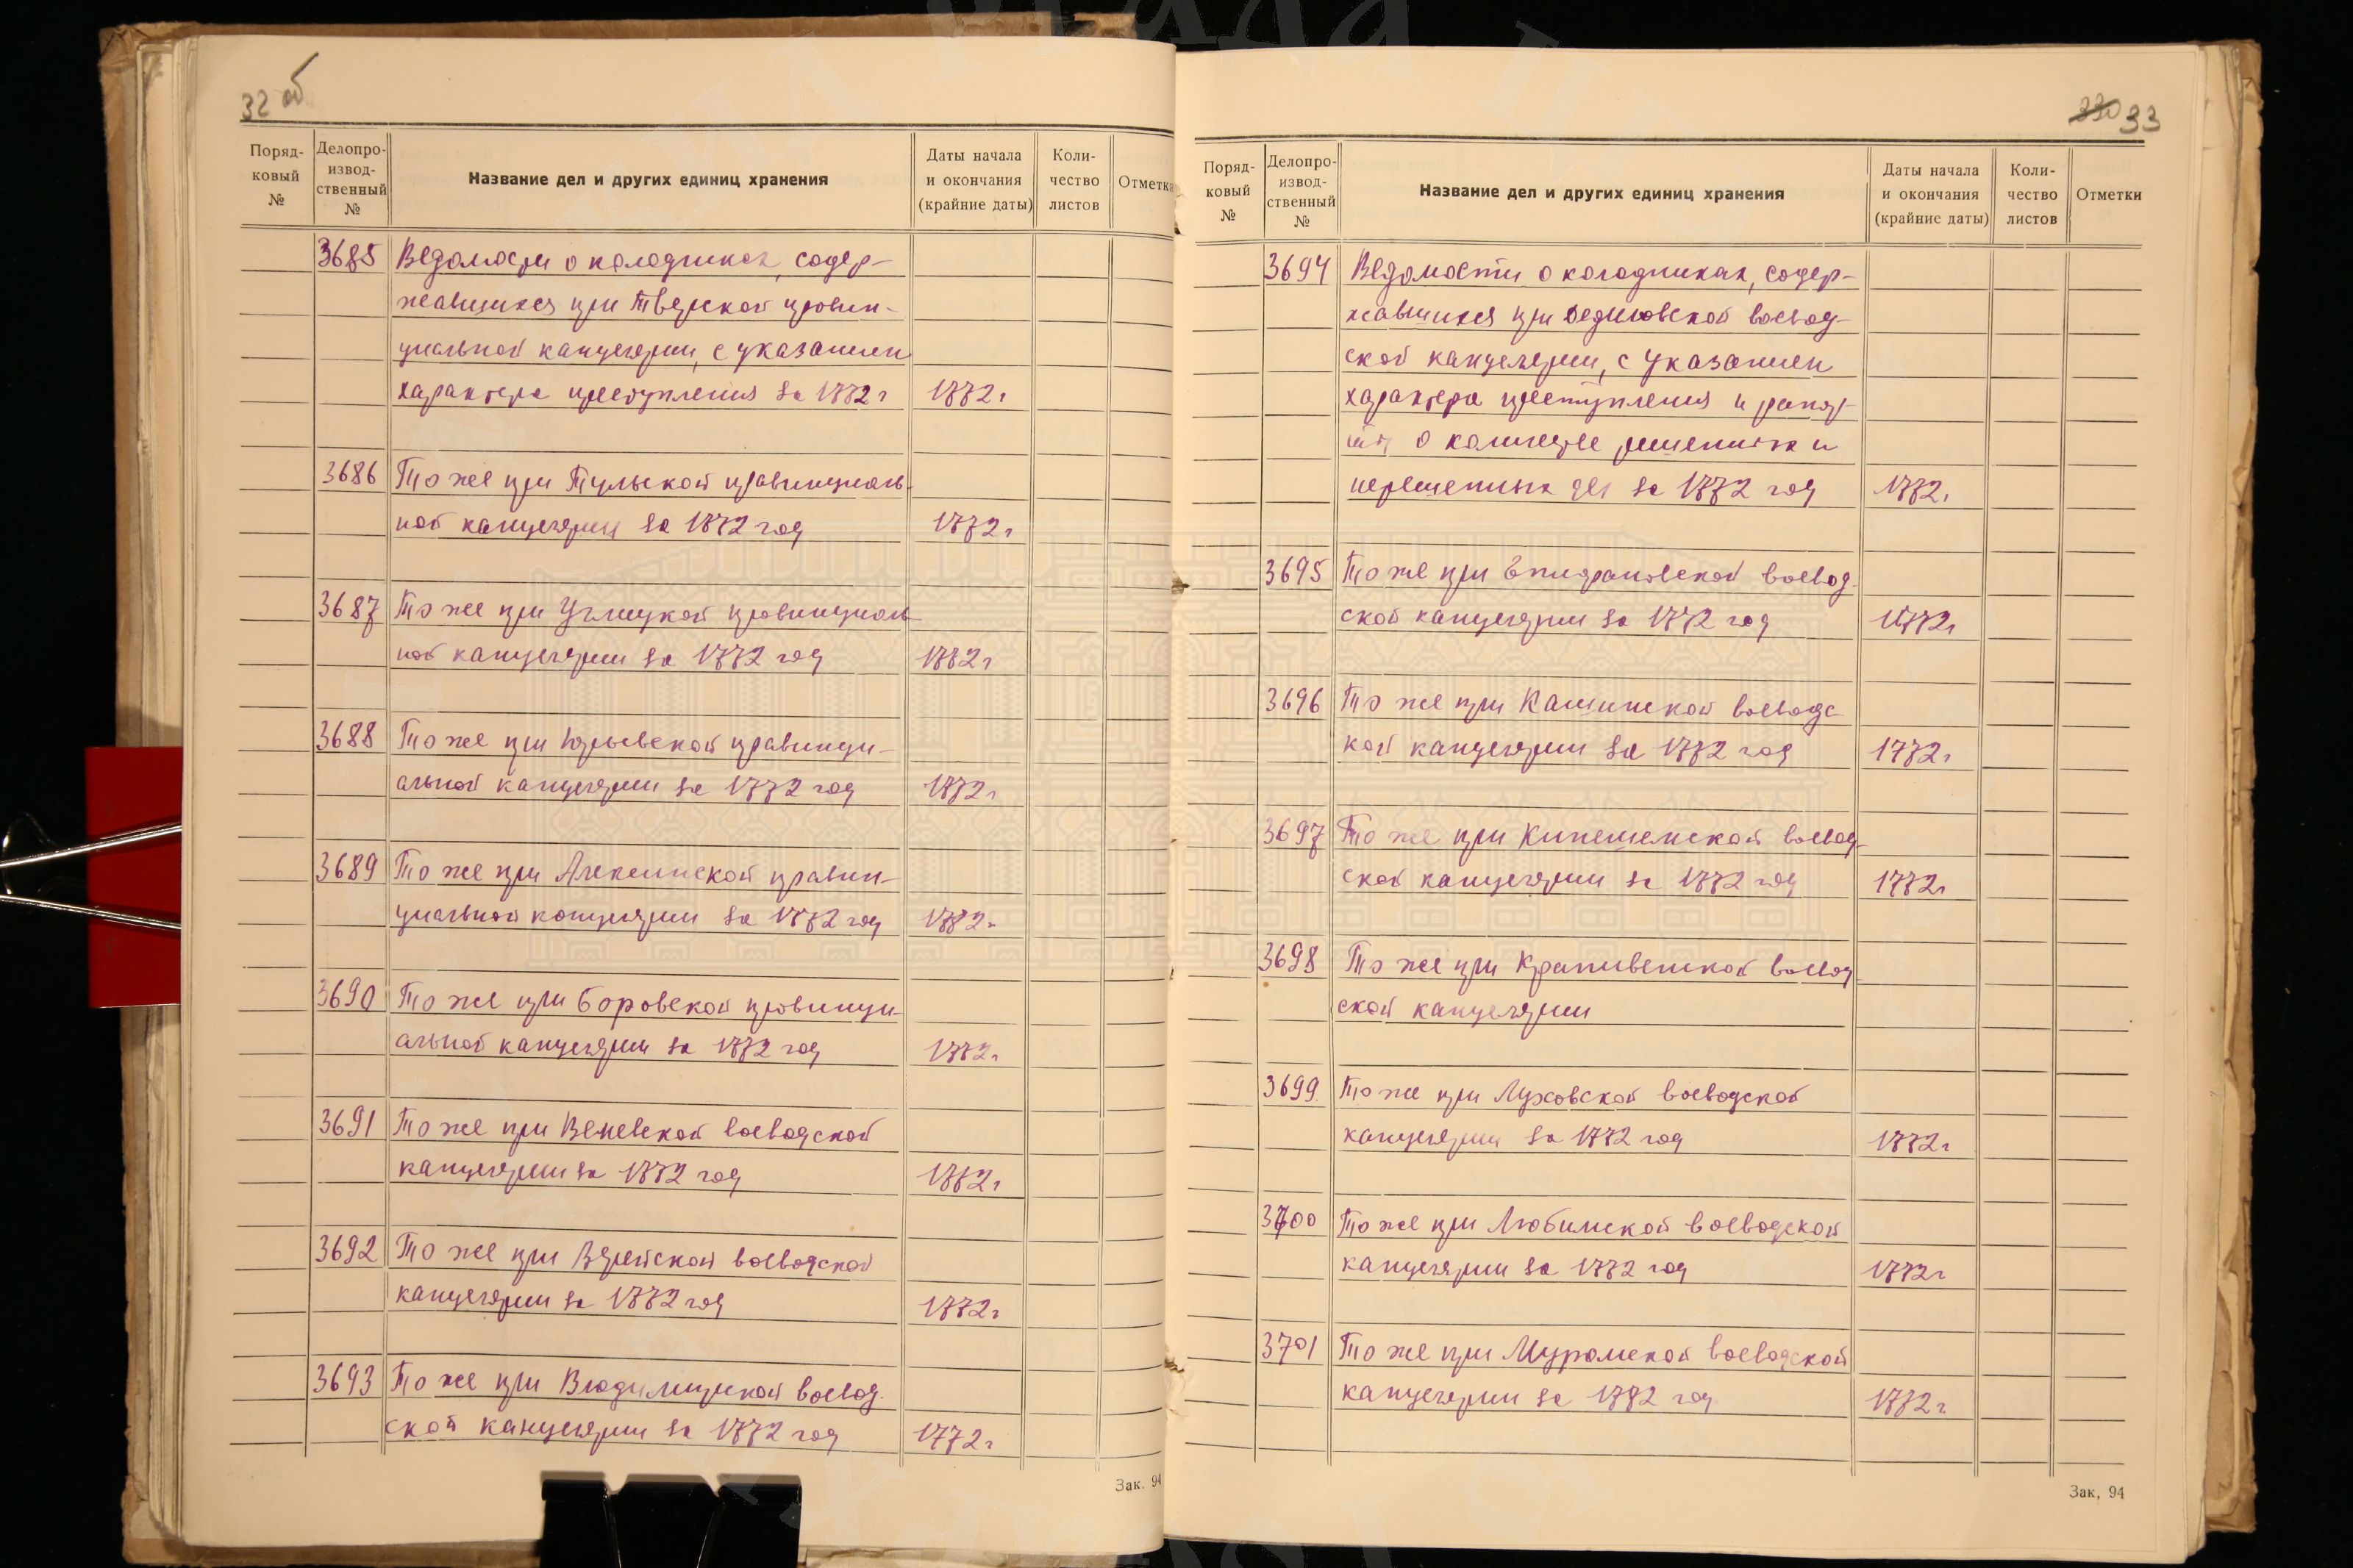 32 об
Поряд-
ковый
№
Делопро-
извод-
ственный
№
Название дел и других единиц хранения
Даты начала
и окончания
(крайние даты)
Коли-
чество
листов
Отметки
3685 Ведомости о колодниках, содер-
жавшихся при Тверской провин-
циальной канцелярии, с указанием
характера преступления за 1772 г 1772 г
3686 То же при Тульской провинциаль-
ной канцелярии за 1772 год 1772 г
3687 То же при Углицкой провинциаль-
ной канцелярии за 1772 год 1772 г
3688 То же при Юрьевской провинци-
альной канцелярии за 1772 год 1772 г
3689 То же при Алексинской провин-
циальной канцелярии за 1772 год 1772 г
3690 То же при Боровской провинци-
альной канцелярии за 1772 год 1772 г
3691 То же при Веневской воеводской
канцелярии за 1772 год 1772 г
3692 То же при Верейской воеводской
канцелярии за 1772 год 1772 г
3693 То же при Владимирской воевод-
ской канцелярии за 1772 год 1772 г
Зак. 94
330 33
Поряд-
ковый
№
Делопро-
извод-
ственный
№
Название дел и других единиц хранения
Даты начала
и окончания
(крайние даты)
Коли-
чество
листов
Отметки
3694 Ведомости о колодниках, содер-
жавшихся при Дедиловской воевод-
ской канцелярии, с указанием
характера преступления и рапор-
ты о количестве решенных и
нерешенных дел за 1772 год 1772 г
3695 То же при Епифановской воевод-
ской канцелярии за 1772 год 1772 г
3696 То же при Кашинской воеводс-
кой канцелярии за 1772 год 1772 г
3697 То же при Кинешемской воевод-
ской канцелярии за 1772 год 1772 г
3698 То же при Крапивенской воевод
ской канцелярии
3699 То же при Луховской воеводской
канцелярии за 1772 год 1772 г
3700 То же при Любимской воеводской
канцелярии за 1772 год 1772 г
3701 То же при Муромской воеводской
канцелярии за 1772 год 1772 г
Зак. 94